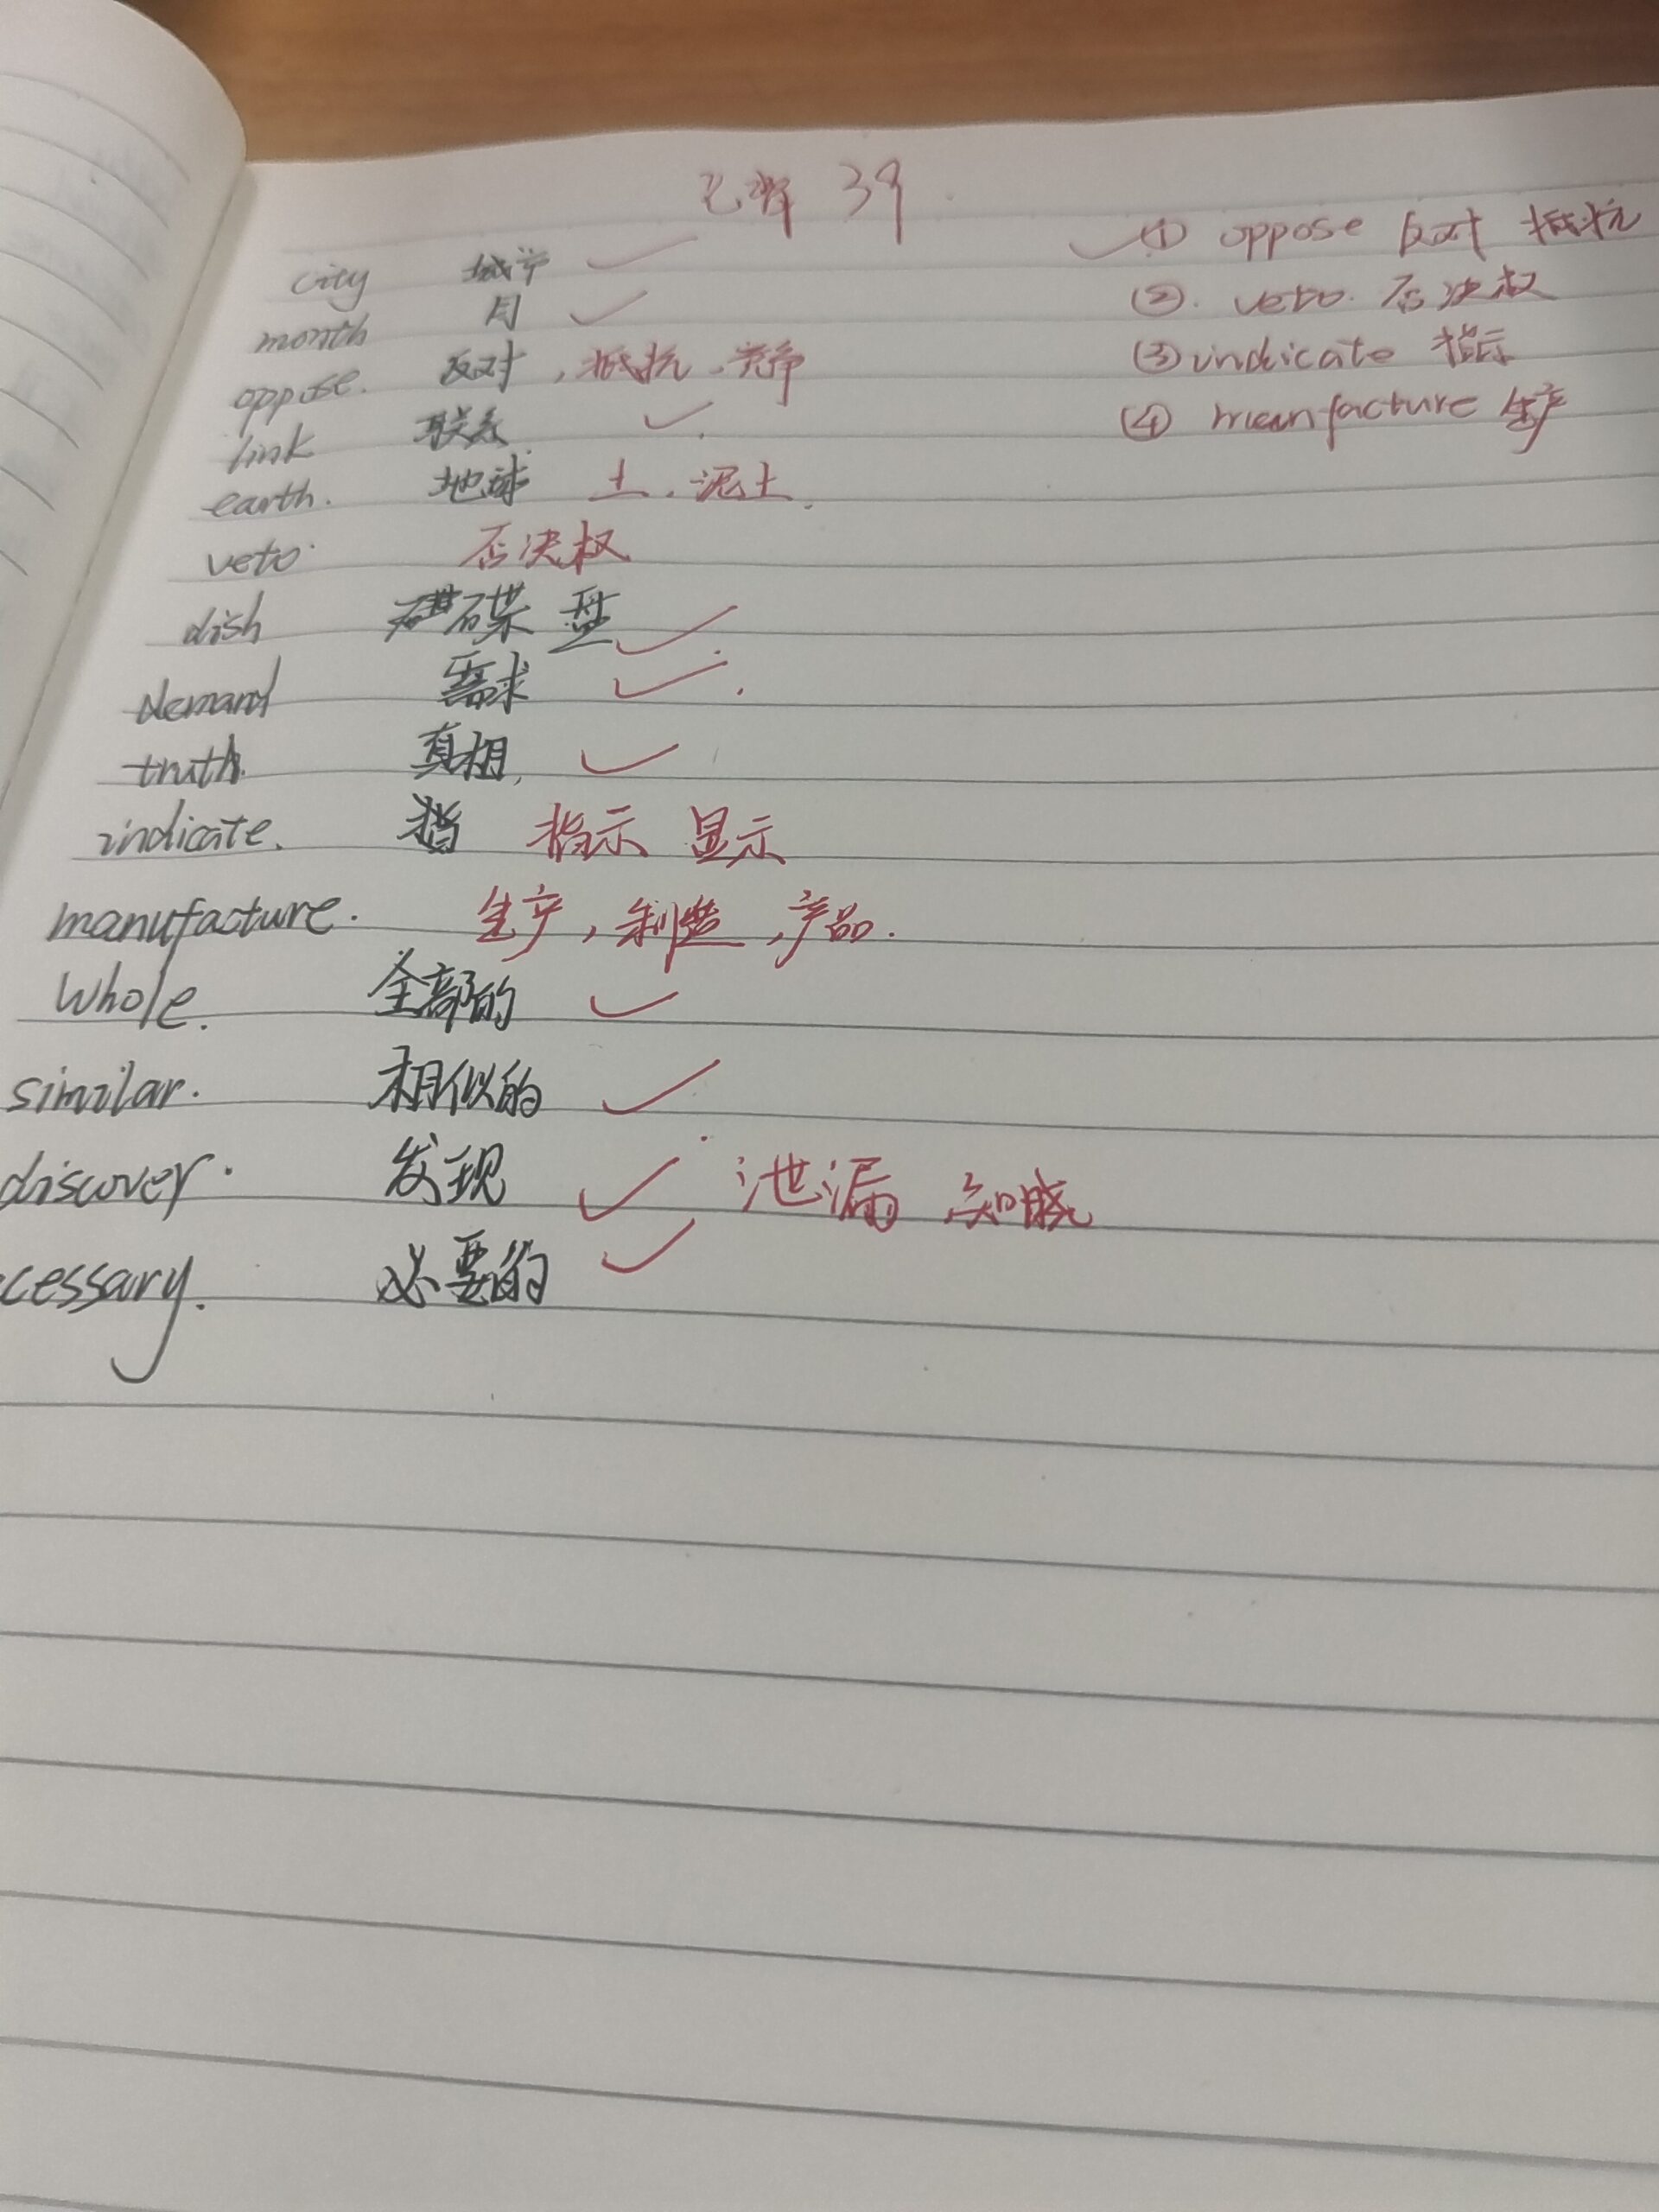 39
city 城市
month 月
oppose. 反对, 抵抗, 竞争
link 联系
earth. 地球 土. 泥土.
veto. 否决权
dish 碟 盘
demand 需求
truth. 真相.
indicate. 指 指示 显示
manufacture. 生产, 制造, 产品.
whole. 全部的
similar. 相似的
discover. 发现 泄漏 知晓
cessary. 必要的
① oppose 反对 抵抗
②. veto. 否决权
③ indicate 指示
④ manfacture 生产